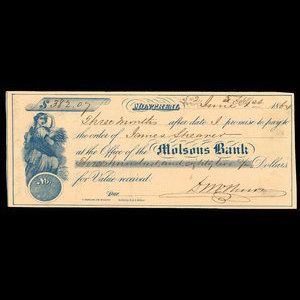 $382.07
MONTREAL, 2nd June 186
Three months after date I promise to pay to
the order of James Shearer
at the Office of the Molsons Bank
Three hundred and eighty two 07 Dollars
for Value received.
No.
Due